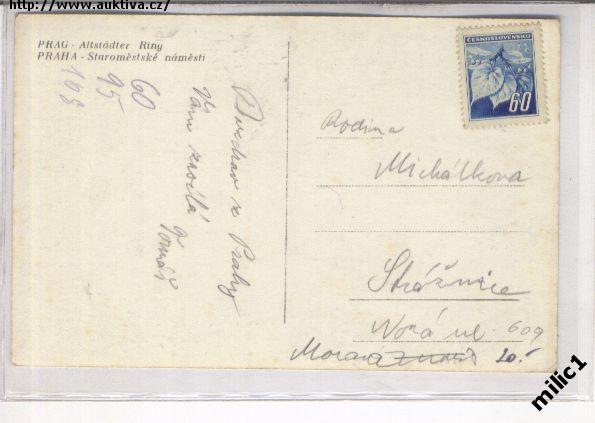 http://www.auktiva.cz/
PRAG - Altstädter Ring
PRAHA - Staroměstské náměstí
60
95
108
Pozdrav z Prahy
Vám zasílá
Tomáš
ČESKOSLOVENSKO
60
Rodina
Michálkova
Strážnice
Nová ul. 609
Morava
20.-
milic1